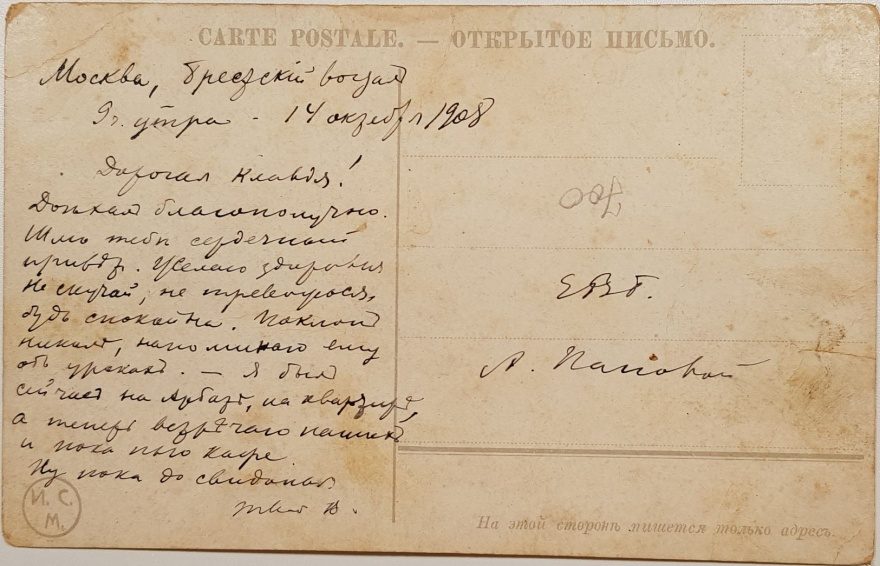 CARTE POSTALE. — ОТКРЫТОЕ ПИСЬМО.
Москва, Брестскій вокзал
9 ч. утра - 14 октября 1908
Дорогая Клавдя!
Доѣхал благополучно.
Шлю тебѣ сердечный
привѣт. Желаю здоровья
не скучай, не тревожься,
будь спокойна. Поклон
напоминаю ему
об уроках. — Я был
сейчас на Арбатѣ, на квартирѣ,
а теперь встрѣчаю наших
и пока пью кофе.
Ну пока до свиданья
твой В.
700
ЕВБ.
А. Поповой
И. С.
М.
На этой сторонѣ пишется только адресъ.